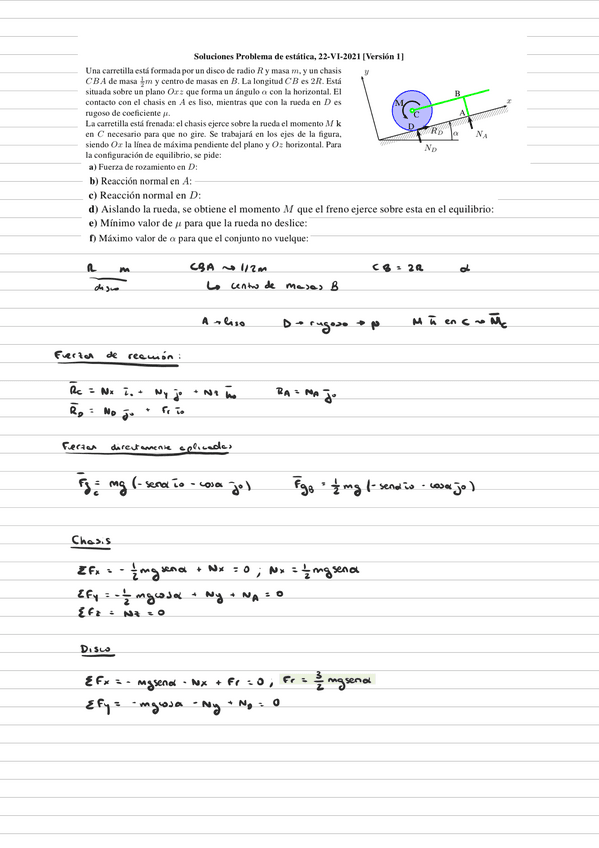 Soluciones Problema de estática, 22-VI-2021 [Versión 1]
Una carretilla está formada por un disco de radio R y masa m, y un chasis
CBA de masa ½m y centro de masas en B. La longitud CB es 2R. Está
situada sobre un plano Oxz que forma un ángulo α con la horizontal. El
contacto con el chasis en A es liso, mientras que con la rueda en D es
rugoso de coeficiente μ.
La carretilla está frenada: el chasis ejerce sobre la rueda el momento M k
en C necesario para que no gire. Se trabajará en los ejes de la figura,
siendo Ox la línea de máxima pendiente del plano y Oz horizontal. Para
la configuración de equilibrio, se pide:
y
x
M
C
B
A
D
R_D
α
N_A
N_D
a) Fuerza de rozamiento en D:
b) Reacción normal en A:
c) Reacción normal en D:
d) Aislando la rueda, se obtiene el momento M que el freno ejerce sobre esta en el equilibrio:
e) Mínimo valor de μ para que la rueda no deslice:
f) Máximo valor de α para que el conjunto no vuelque:
R m CBA → 1/2m CB = 2R α
disco ↳ centro de masas B
A → liso D → rugoso → μ M k̄ en C → M̄c
Fuerzas de reacción:
R̄c = Nx ī₀ + Ny j̄₀ + Nz k̄₀ R̄A = NA j̄₀
R̄D = ND j̄₀ + Fr ī₀
Fuerzas directamente aplicadas
F̄gc = mg (-senα ī₀ - cosα j̄₀) F̄gB = 1/2 mg (-senα ī₀ - cosα j̄₀)
Chasis
ΣFx = - 1/2 mg senα + Nx = 0 ; Nx = 1/2 mg senα
ΣFy = - 1/2 mg cosα + Ny + NA = 0
ΣFz = Nz = 0
Disco
ΣFx = - mg senα - Nx + Fr = 0, Fr = 3/2 mg senα
ΣFy = - mg cosα - Ny + ND = 0